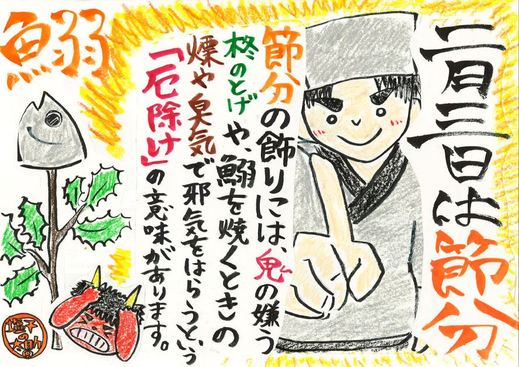 二月三日は節分
節分の飾りには、鬼の嫌う
柊のとげや、鰯を焼くときの
煙や臭気で邪気をはらうという
「厄除け」の意味があります。
鰯